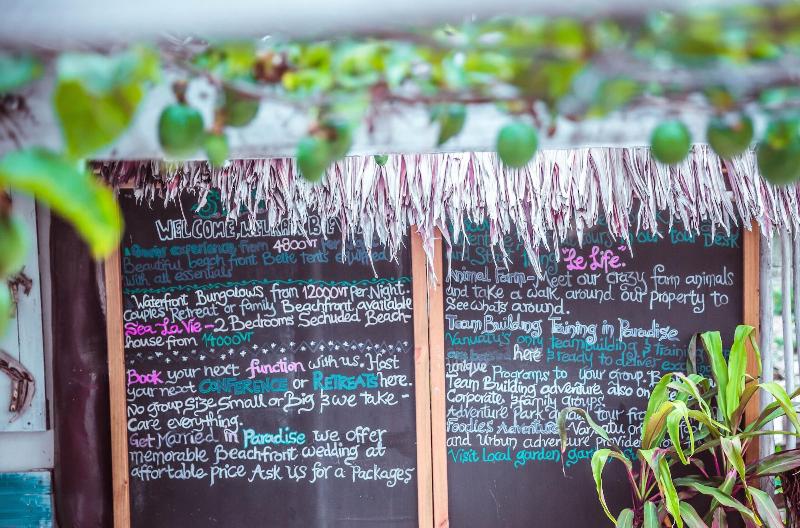 WELCOME, WELKAM, B
experience from 4800vt
Beautiful beach front Belle tents
with all essentials
Waterfront Bungalows, from 12000vt Per Night.
Couples Retreat or family Beachfront available
Sea-La Vie - 2 Bedrooms Secluded Beach-
house from 14000vt
Book your next function with us. Host
your next CONFERENCE or RETREATS here.
No group size Small or Big & we take -
Care everything.
Get Married in Paradise we offer
memorable Beachfront wedding at
affordable price Ask us for a Packages
our Tour Desk
"Le Life"
Animal Farm - Meet our crazy farm animals
and take a walk around our property to
see whats around.
Team Building Taining in Paradise
Vanuatu's only teambuilding & Training
are based here & ready to deliver
unique Programs to your group.
Team Building adventure, also on
Corporate & family groups,
Adventure Park and tour
foodies Adventure, Vanuatu
and Urbun adventure Provide
Visit Local garden,